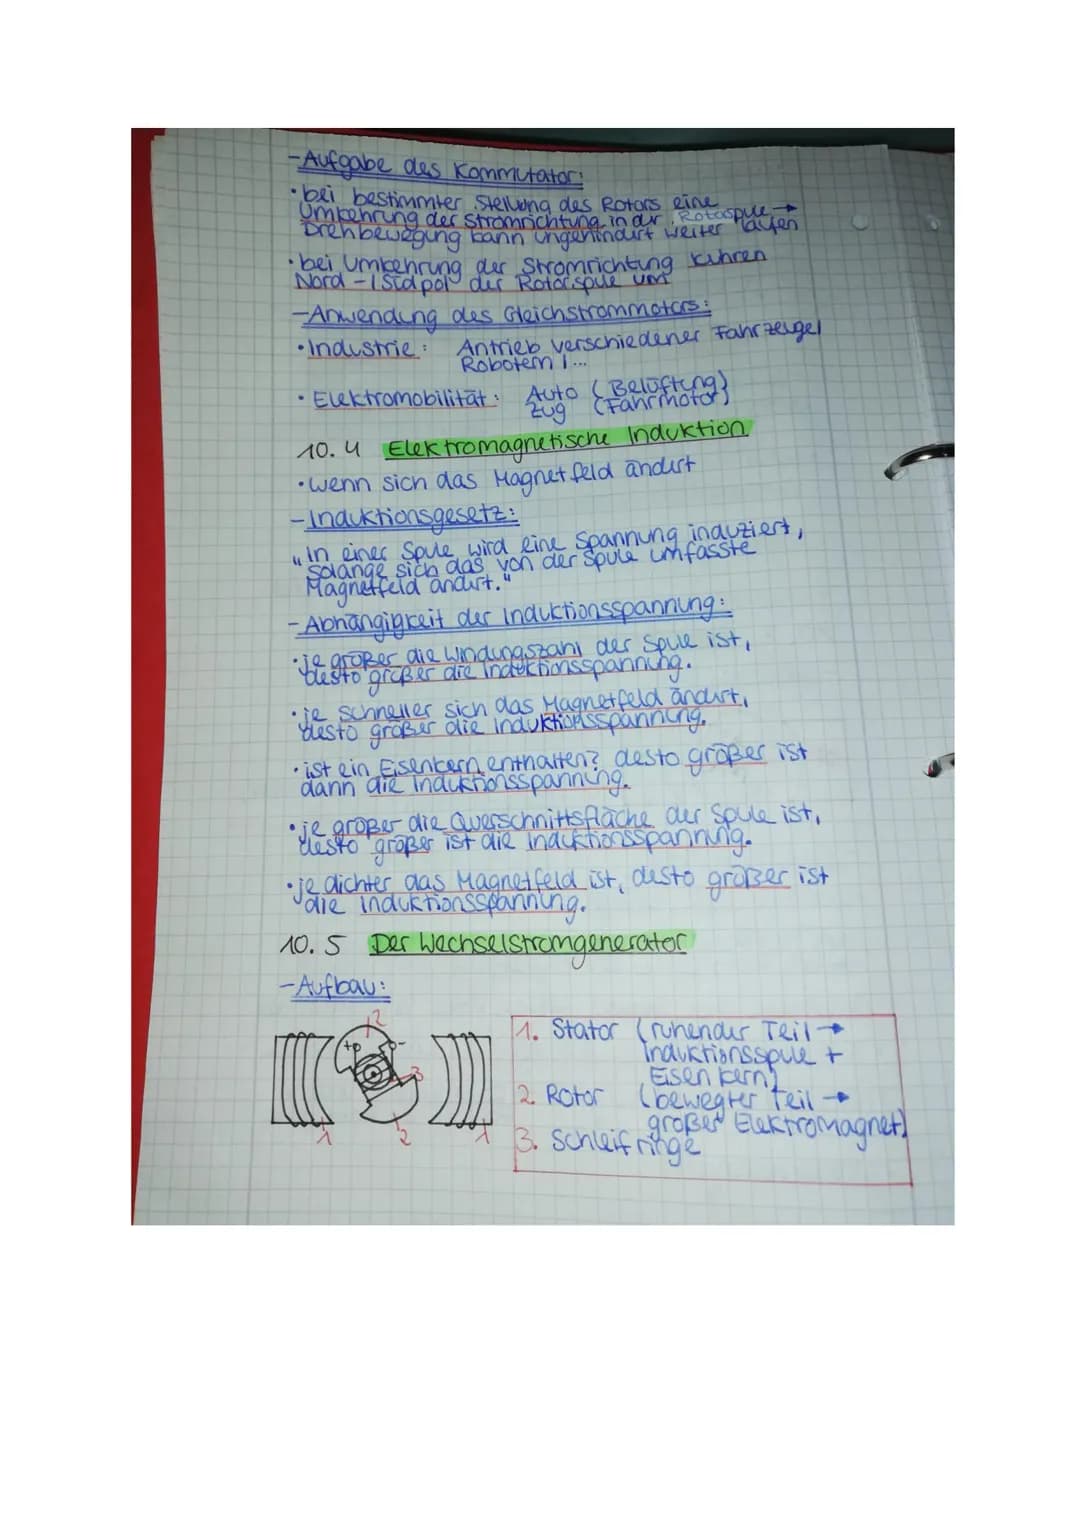 - Aufgabe des Kommutator:
• bei bestimmter Stellung des Rotors eine
Umkehrung der Stromrichtung in der Rotorspule →
Drehbewegung kann ungehindert weiter laufen
• bei Umkehrung der Stromrichtung kehren
Nord-/Südpol der Rotorspule um
- Anwendung des Gleichstrommotors:
• Industrie: Antrieb verschiedener Fahrzeuge/
Robotern/...
• Elektromobilität: Auto (Belüftung)
Zug (Fahrmotor)
10.4 Elektromagnetische Induktion
• wenn sich das Magnetfeld ändert
- Induktionsgesetz:
„In einer Spule wird eine Spannung induziert,
solange sich das von der Spule umfasste
Magnetfeld ändert."
- Abhängigkeit der Induktionsspannung:
• je größer die Windungszahl der Spule ist,
desto größer die Induktionsspannung.
• je schneller sich das Magnetfeld ändert,
desto größer die Induktionsspannung.
• ist ein Eisenkern enthalten? desto größer ist
dann die Induktionsspannung.
• je größer die Querschnittsfläche der Spule ist,
desto größer ist die Induktionsspannung.
• je dichter das Magnetfeld ist, desto größer ist
die Induktionsspannung.
10.5 Der Wechselstromgenerator
- Aufbau:
2
+ -
3
1 2 1
1. Stator (ruhender Teil →
Induktionsspule +
Eisenkern)
2. Rotor (bewegter Teil →
großer Elektromagnet)
3. Schleifringe